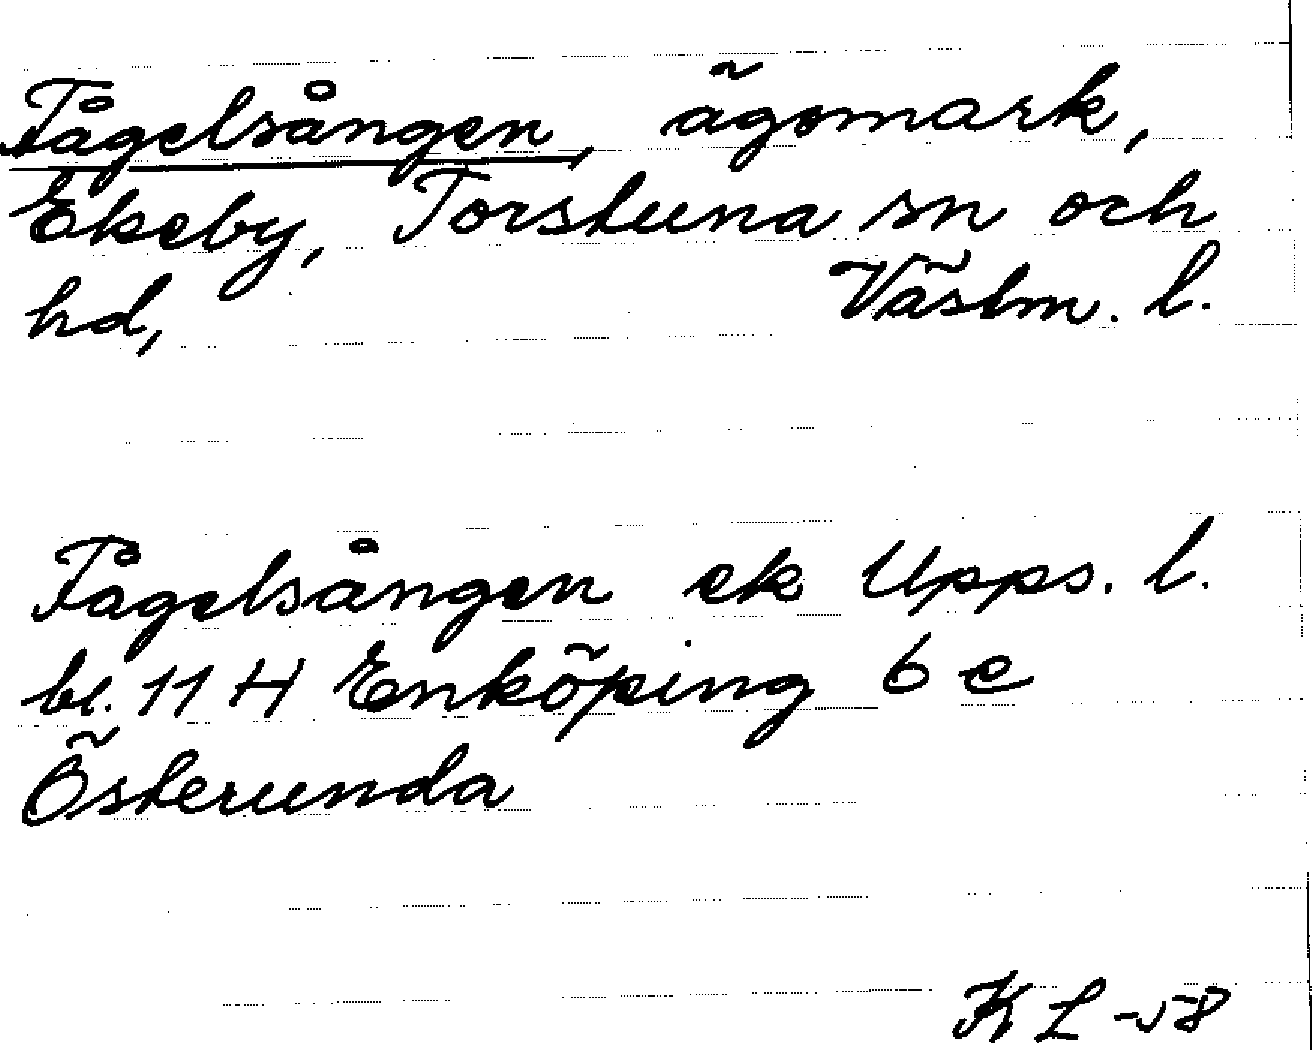 Fågelsången, ägomark,
Ekeby, Torstuna sn och
hd, Västm. l.
Fågelsången ek Upps. l.
bl. 11 H Enköping 6 e
Österunda
KL-58